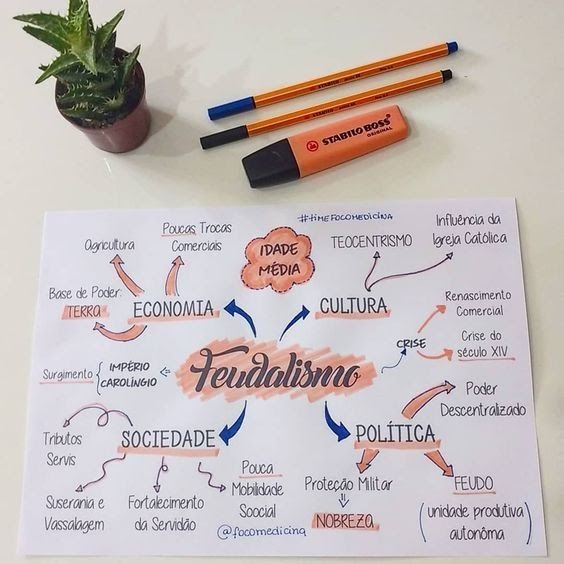 STABILO BOSS
ORIGINAL
#tiMEFOCOMEDICINA
IDADE
MÉDIA
Agricultura
Poucas Trocas
Comerciais
TEOCENTRISMO
Influência da
Igreja Católica
Base de Poder:
TERRA
ECONOMIA
CULTURA
Renascimento
Comercial
CRISE
Crise do
século XIV
Feudalismo
Surgimento
IMPÉRIO
CAROLÍNGIO
Poder
Descentralizado
Tributos
Servis
SOCIEDADE
POLÍTICA
Suserania e
Vassalagem
Fortalecimento
da Servidão
Pouca
Mobilidade
Soocial
Proteção Militar
NOBREZA
FEUDO
(unidade produtiva
autonôma)
@focomedicina